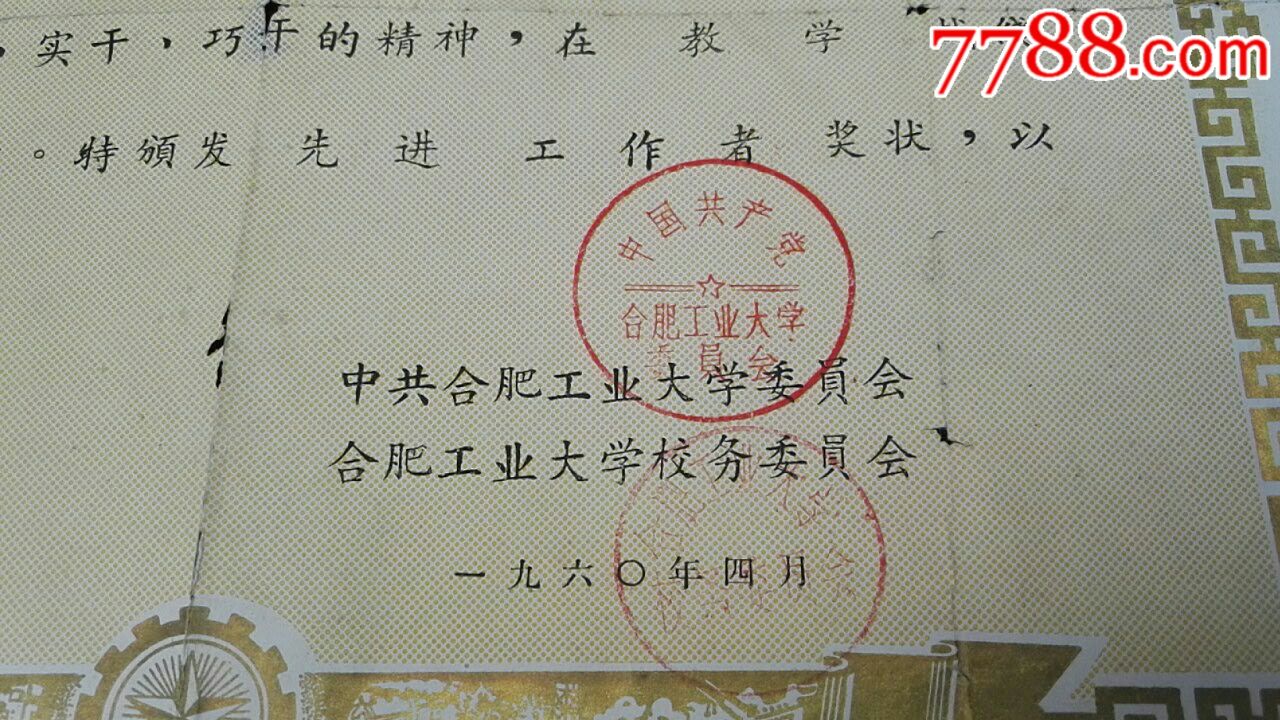 ，实干，巧干的精神，在 教 学 战线
7788.com
。特頒发 先 进 工 作 者 奖状，以
中国共产党
合肥工业大学
委員会
中共合肥工业大学委員会
合肥工业大学校务委員会
合肥工业大学
校务委員会
一九六〇年四月